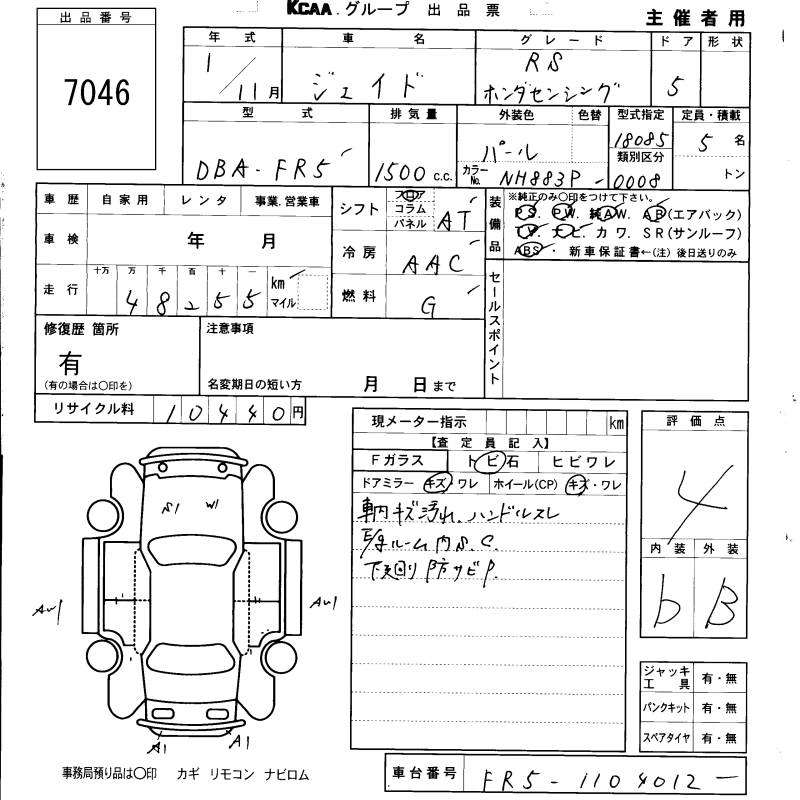 KCAA.グループ 出品票
主催者用
出品番号
7046
年式 車名 グレード ドア 形状
1/11月 ジェイド RS ホンダセンシング 5
型式 排気量 外装色 色替 型式指定 定員・積載
DBA-FR5 1500c.c. パール 18085 5名
カラーNo. NH883P 類別区分 0008 トン
車歴 自家用 レンタ 事業.営業車
車検 年 月
走行 十万 万 千 百 十 一
48255 km マイル
シフト フロア コラム パネル AT
冷房 AAC
燃料 G
装備品
※純正のみ〇印をつけて下さい。
PS. PW. 純AW. AB(エアバック)
TV. ナビ. カワ. SR(サンルーフ)
ABS・ 新車保証書←(注)後日送りのみ
セールスポイント
修復歴 箇所
有
(有の場合は〇印を)
注意事項
名変期日の短い方 月 日まで
リサイクル料 10440円
現メーター指示 km
【査定員記入】
Fガラス トビ石 ヒビワレ
ドアミラー キズ・ワレ ホイール(CP) キズ・ワレ
車内キズ汚れ、ハンドルスレ
ルーム内S.C.
下廻り防サビP.
評価点
4
内装 外装
b B
ジャッキ工具 有・無
パンクキット 有・無
スペアタイヤ 有・無
A1 A1
事務局預り品は〇印 カギ リモコン ナビロム
車台番号 FR5-1104012